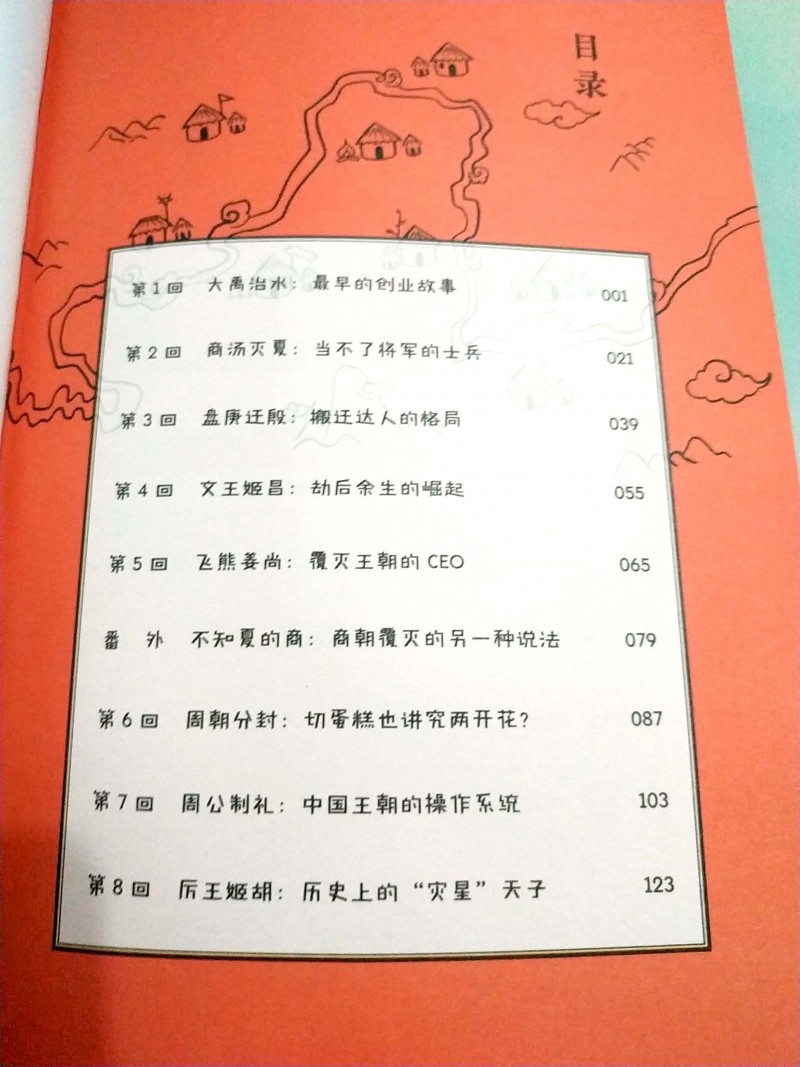 目录
第1回 大禹治水：最早的创业故事 001
第2回 商汤灭夏：当不了将军的士兵 021
第3回 盘庚迁殷：搬迁达人的格局 039
第4回 文王姬昌：劫后余生的崛起 055
第5回 飞熊姜尚：覆灭王朝的CEO 065
番 外 不知夏的商：商朝覆灭的另一种说法 079
第6回 周朝分封：切蛋糕也讲究两开花？ 087
第7回 周公制礼：中国王朝的操作系统 103
第8回 厉王姬胡：历史上的“灾星”天子 123